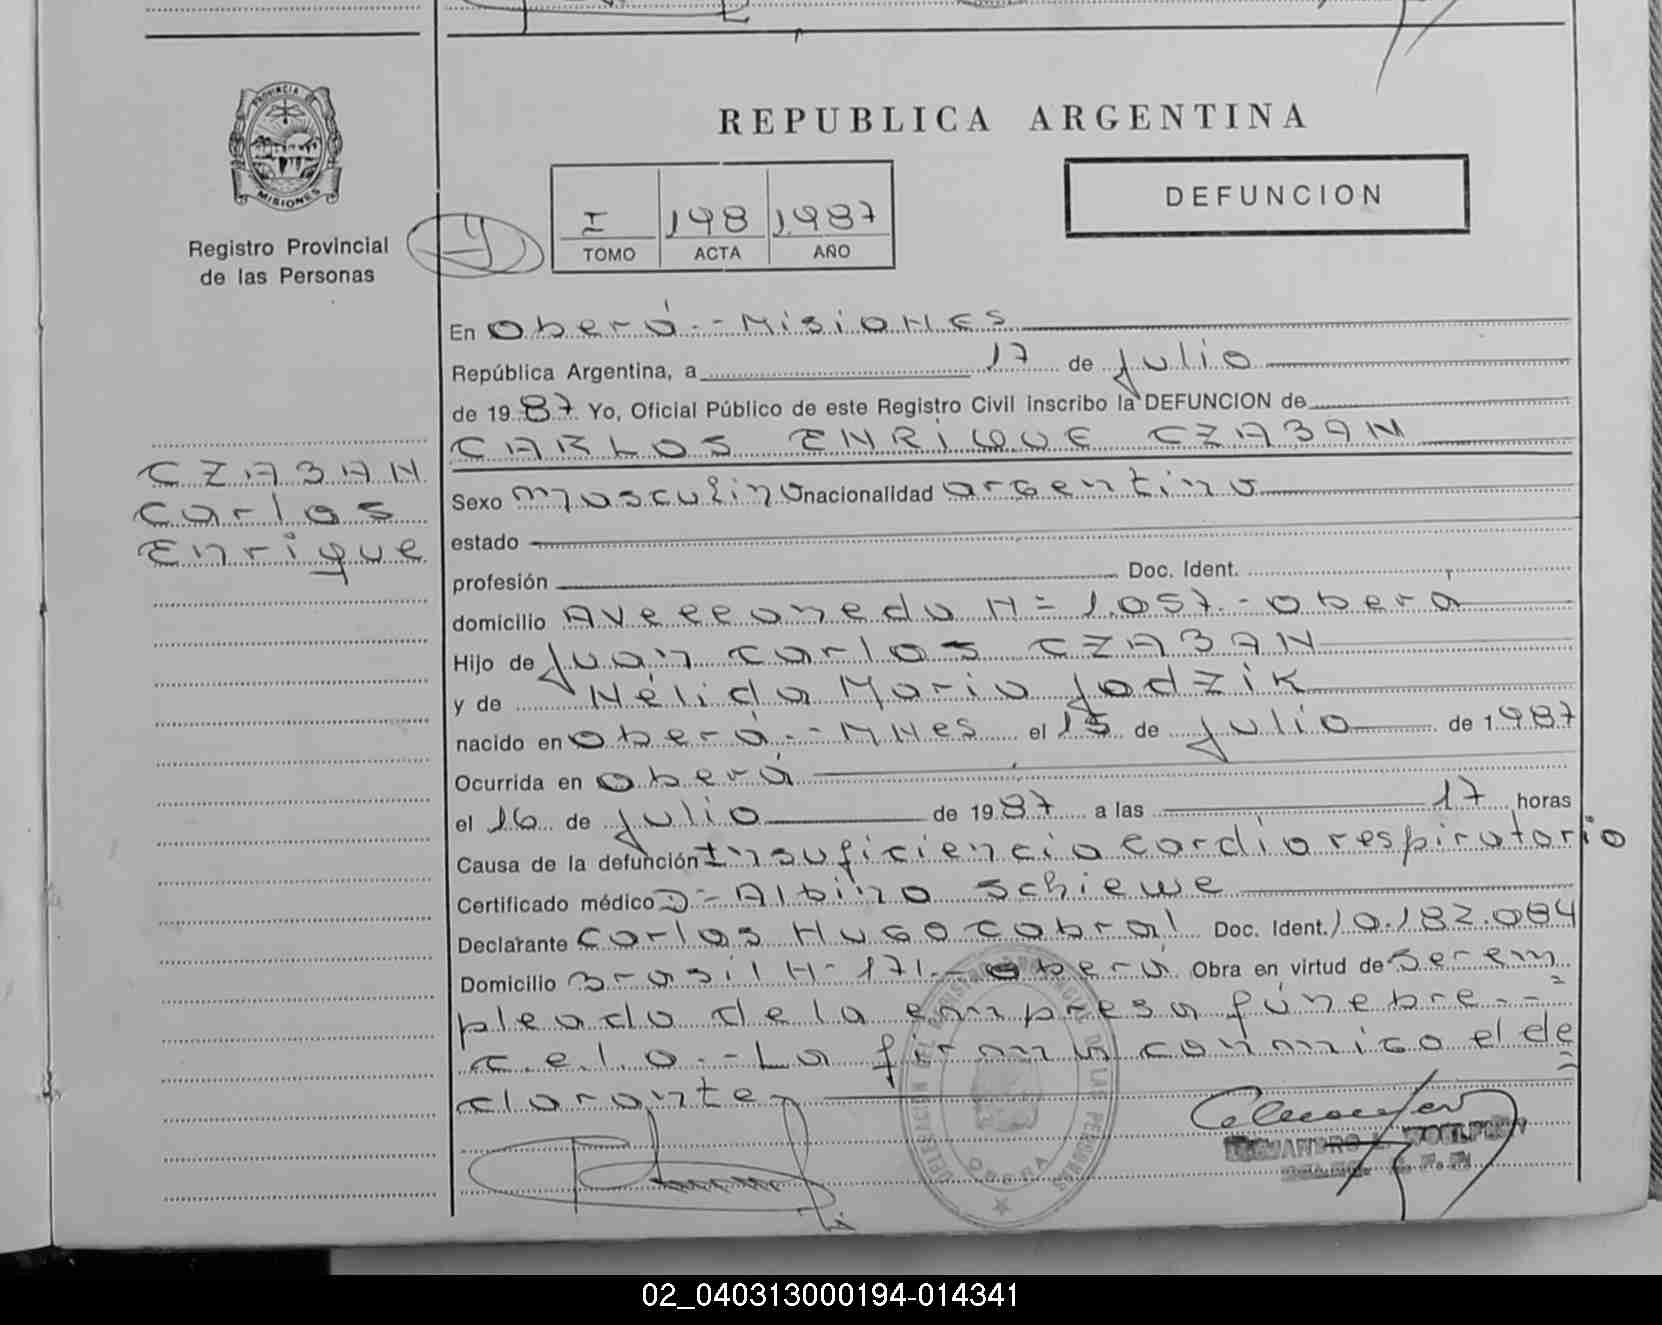 PROVINCIA DE
MISIONES
Registro Provincial
de las Personas
REPUBLICA ARGENTINA
I 198 1.987
TOMO ACTA AÑO
DEFUNCION
CZABAN
Carlos
Enrique
En Oberá.-Misiones
República Argentina, a 17 de julio
de 1987 Yo, Oficial Público de este Registro Civil inscribo la DEFUNCION de
CARLOS ENRIQUE CZABAN
Sexo masculino nacionalidad argentino
estado
profesión Doc. Ident.
domicilio Avellaneda N= 1.057.-Oberá
Hijo de Juan Carlos CZABAN
y de Nélida Maria Jodzik
nacido en Oberá.-Mnes el 15 de julio de 1.987
Ocurrida en Oberá
el 16 de julio de 1987 a las 17 horas
Causa de la defunción Insuficiencia cardiorespiratorio
Certificado médico D=Albino Schiewe
Declarante Carlos Hugo Cabral Doc. Ident. 10.182.084
Domicilio Brasil N- 171.-Oberá Obra en virtud de Ser em
pleado de la empresa fúnebre.-
C.e.l.o.-La firma conmigo el de
clarante
DELEGACION DEL REGISTRO PROVINCIAL DE LAS PERSONAS
OBERA
02_040313000194-014341